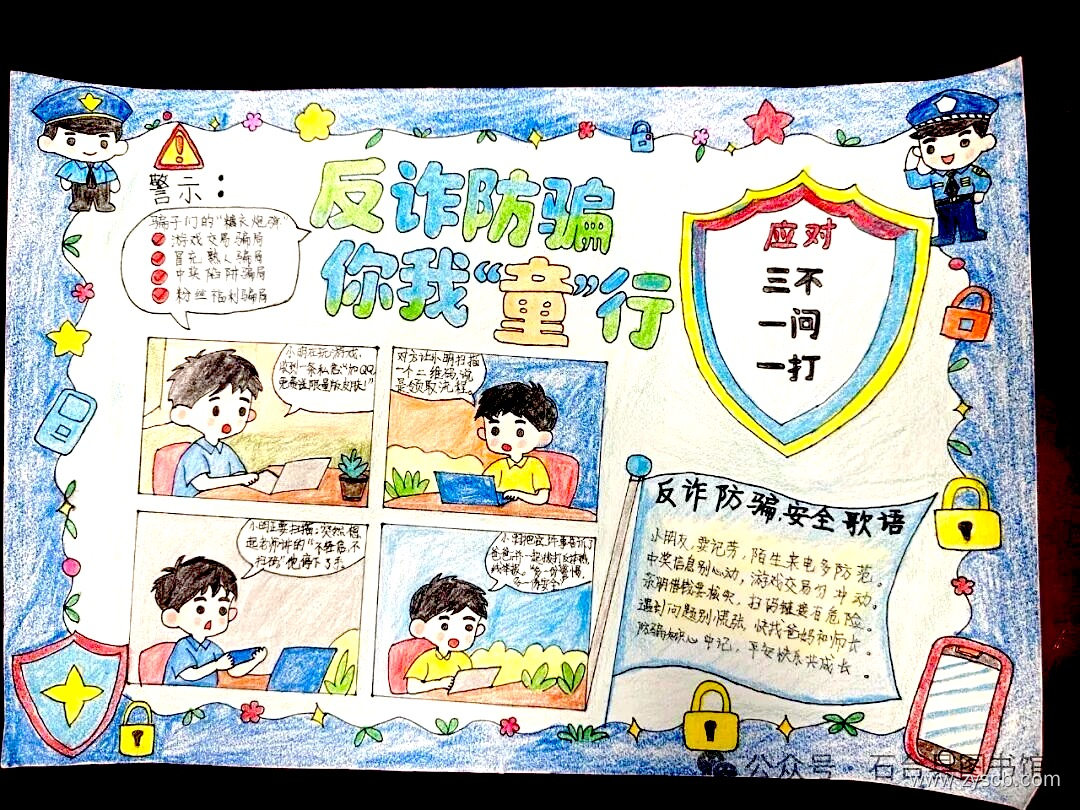 警示：
骗子们的“糖衣炮弹”
游戏交易骗局
冒充熟人骗局
中奖陷阱骗局
粉丝福利骗局
反诈防骗
你我“童”行
应对
三不
一问
一打
小明在玩游戏，
收到一条私信“加QQ
免费送限量版皮肤！”
对方让小明扫描
一个二维码，说
是领取流程。
小明正要扫描，突然想
起老师讲的“不轻信，不
扫码”他停下了手
小明把这件事告诉了
爸爸，并一起拨打反诈热
线举报。“多一份警惕，
多一份安全”
反诈防骗，安全歌语
小朋友，要记劳，陌生来电多防范。
中奖信息别心动，游戏交易勿冲动。
亲朋借钱要核实，扫码链接有危险。
遇到问题别慌张，快找爸妈和师长。
防骗知识心中记，平安快乐共成长。
公众号
书馆
www.zyscb.com